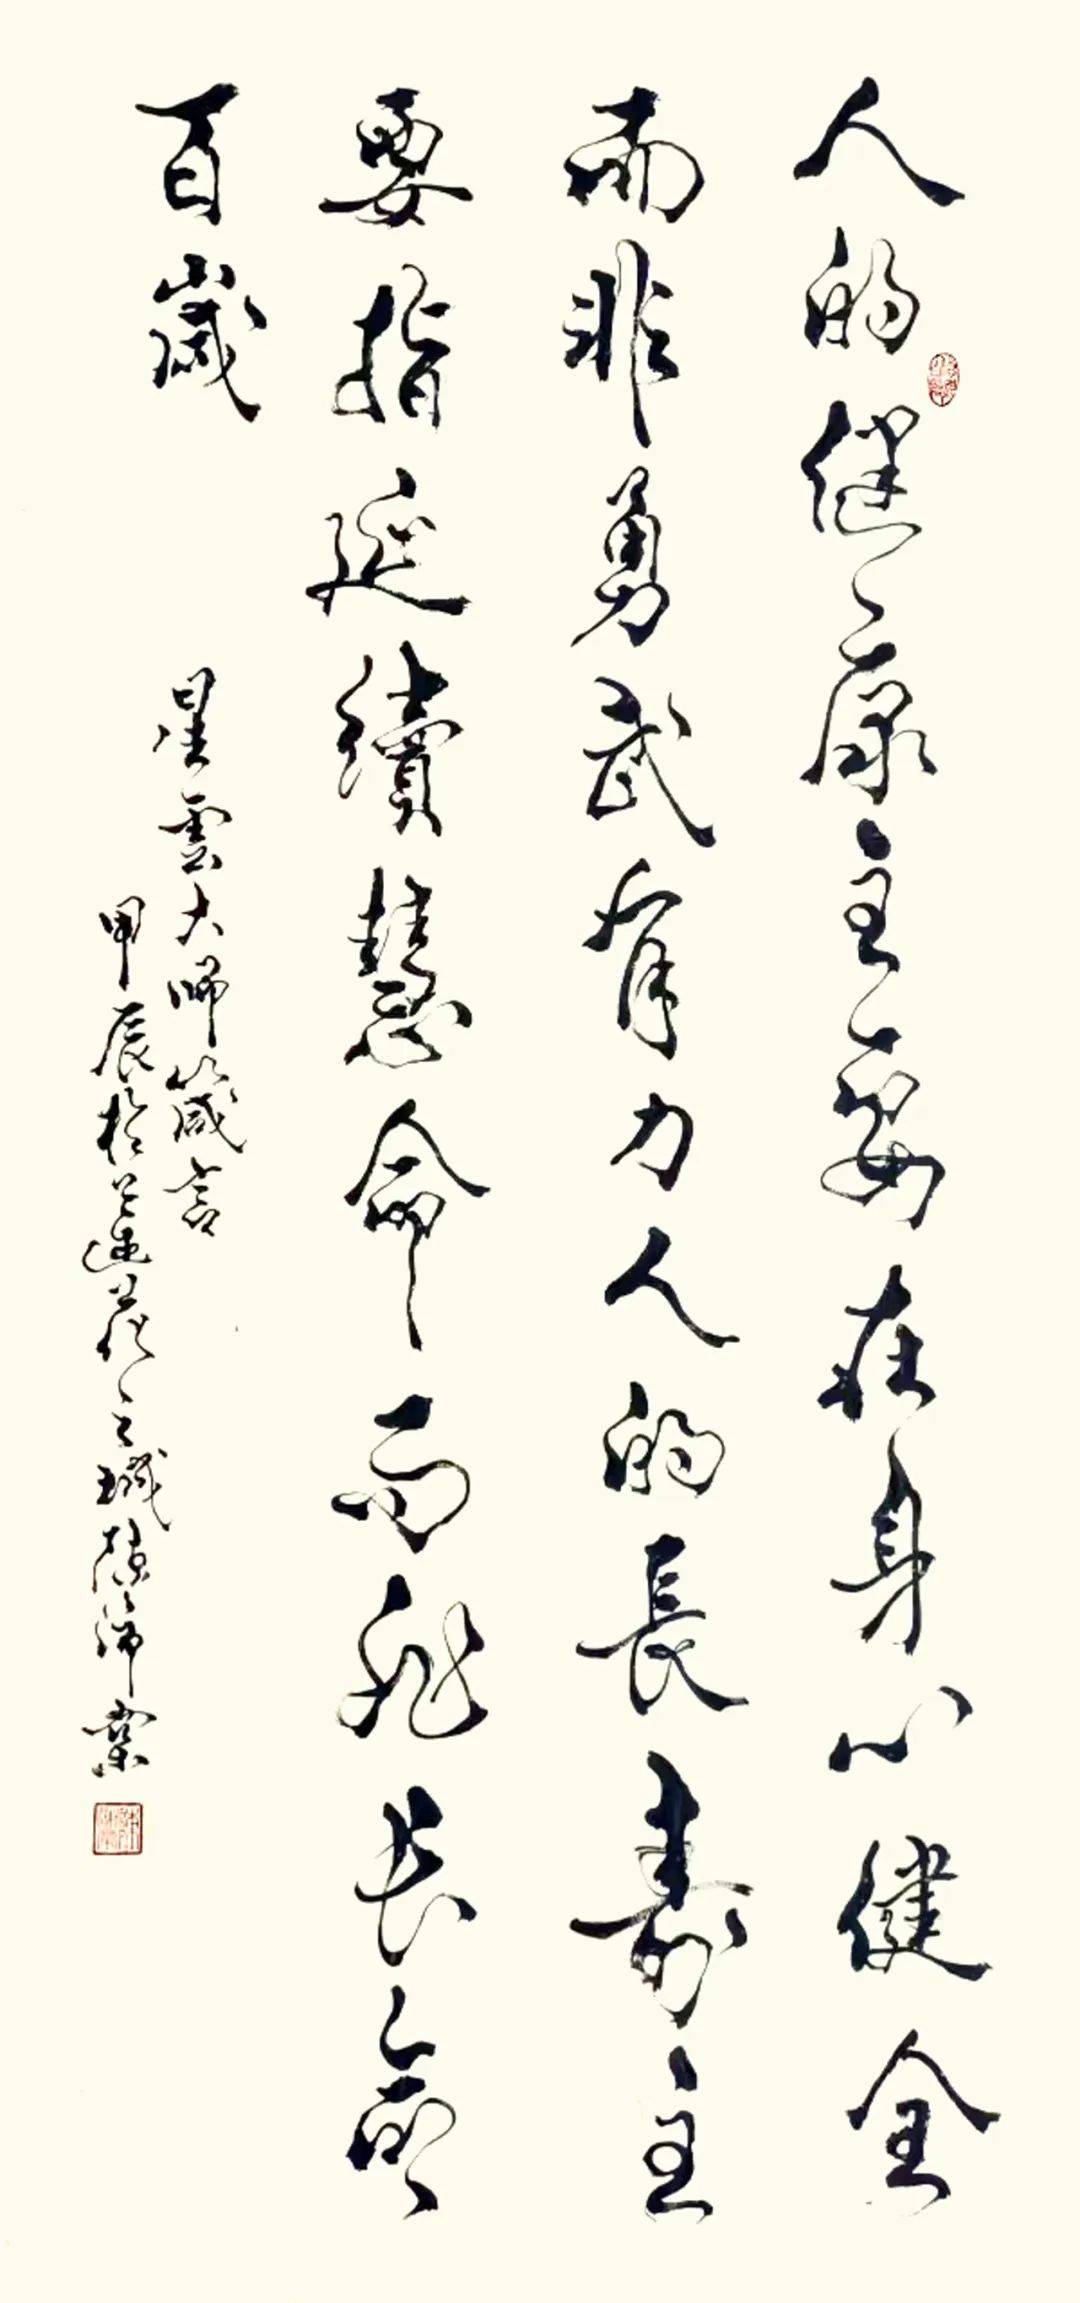 人的健康主要在身心健全
而非勇武有力人的長壽主
要指延續慧命而非長命
百歲
星雲大师箴言
甲辰於莲花之城